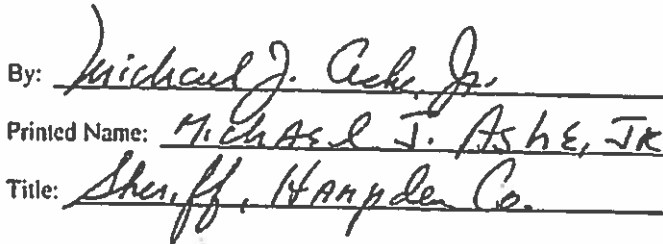 By: Michael J. Ashe, Jr.
Printed Name: Michael J. Ashe, JR
Title: Sheriff, Hampden Co.